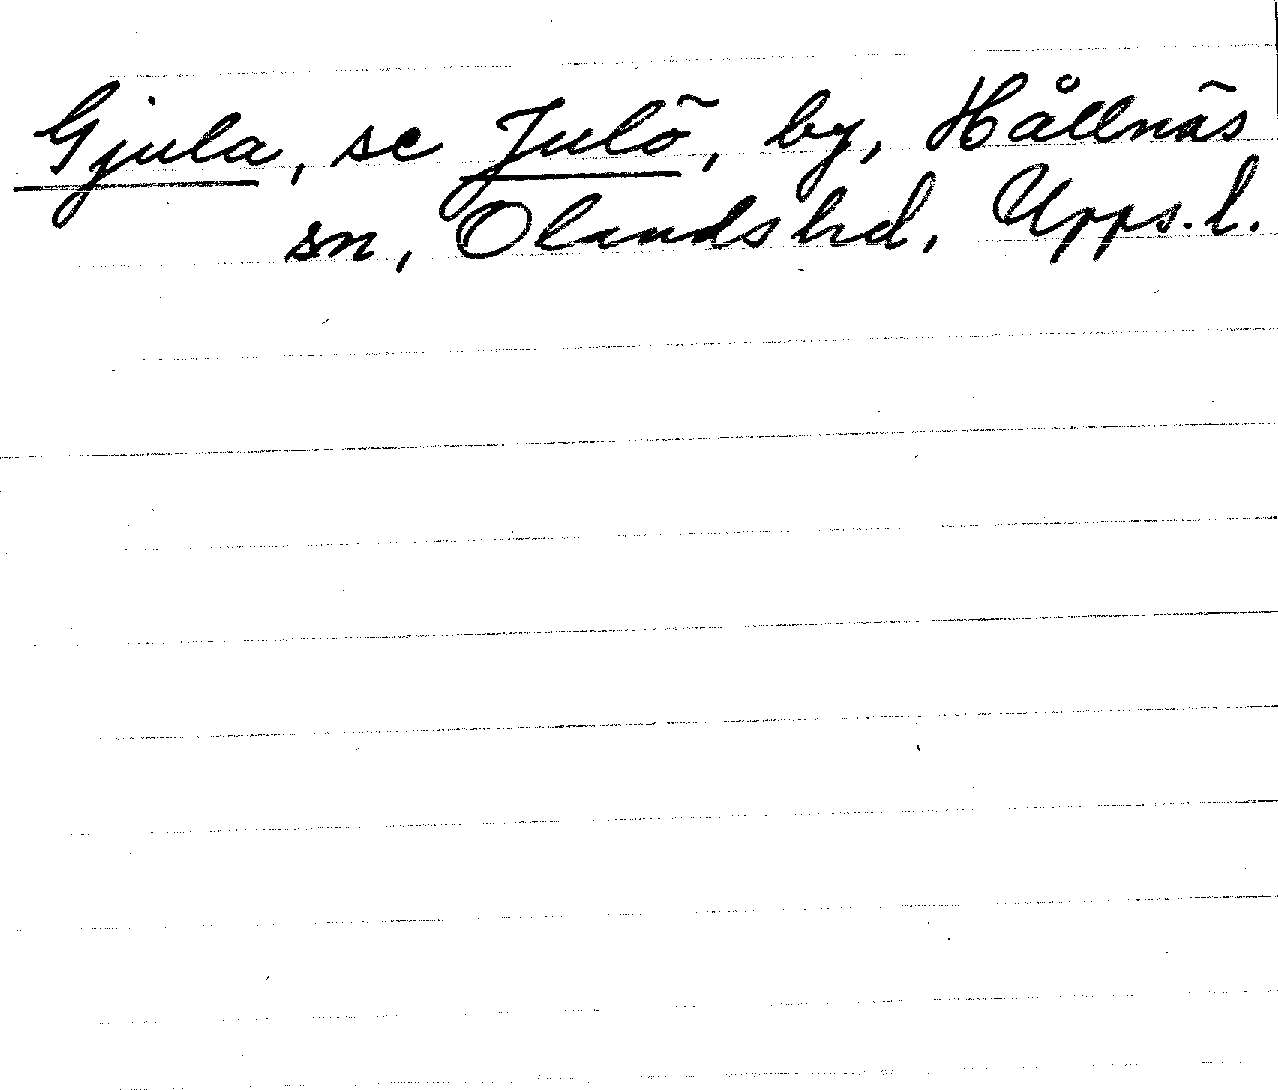 Gjula, se Julö, by, Hållnäs
sn, Olands hd, Upps. l.